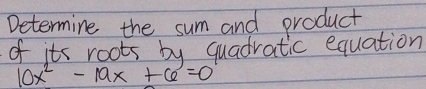 Determine the sum and product
of its roots by quadratic equation
10x² - 19x + 6 = 0